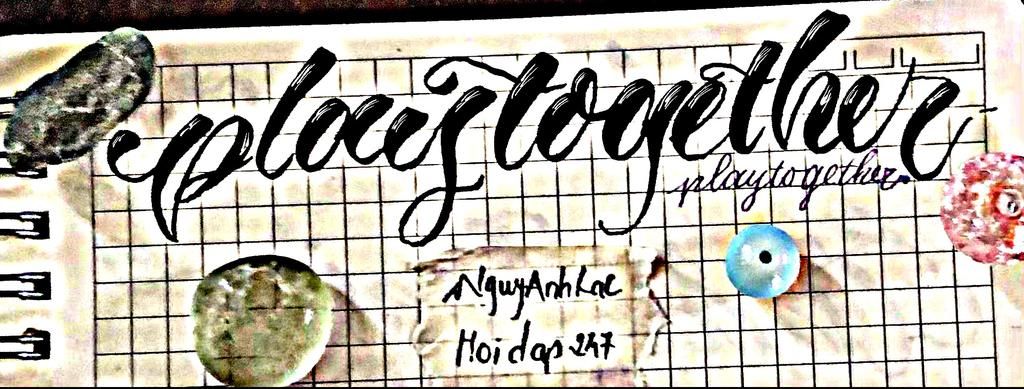 playtogether
playtogether
NguyAnhLac
Hoidap247